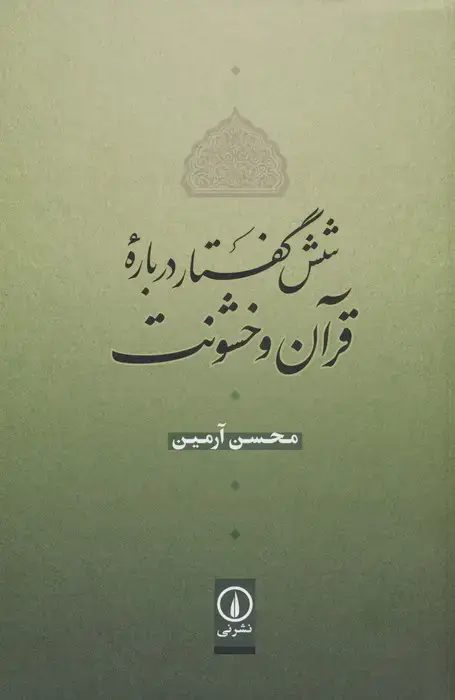 شش گفتار دربارهٔ
قرآن و خشونت
محسن آرمین
نشرنی